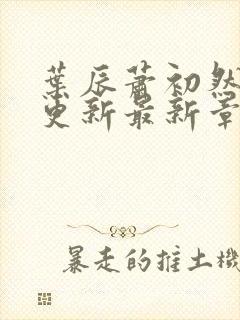 葉辰蕭初然
更新最新章
暴走的推土機